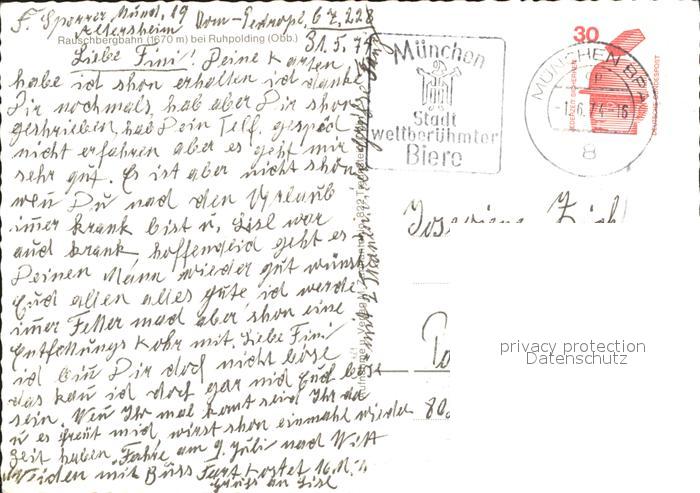 F. Sporrer, Münd. 19
Altersheim
Dom-Pedropl. 6 Z. 228
Rauschbergbahn (1670 m) bei Ruhpolding (Obb.)
31.5.74
Liebe Fini! Deine Karten
habe id shon erhalten id danke
Dir nochmals, hab aber Dir shon
geshrieben, hab Dein Telf. gespräd
nicht erfahren aber es geht mir
sehr gut. Es ist aber nicht shön
wen Du nad den Urlaub
imer krank bist u. Lisl war
aud krank, hoffendlid geht es
Deinen Mann wieder gut wünsche
Eud allen alles gute id werde
imer Fetter mad aber shon eine
Entfettungs Kohr mit. Liebe Fini
id bin Dir dod nicht böse
das kan id dod gar nid Eud böse
sein. Wen Ihr mal komt seid Ihr da
u es freut mid, wirst shon einmahl wieder
Zeit haben. Fahre am 9. Juli nad Wett
Weiden mit Buss Fart Kostet 16.M.
Gruss an Lisl
München
Stadt
weltberühmter
Biere
MÜNCHEN BPA
-1.6.74-16
8
30
JEDERZEIT SICHERHEIT
DEUTSCHE BUNDESPOST
80
privacy protection
Datenschutz